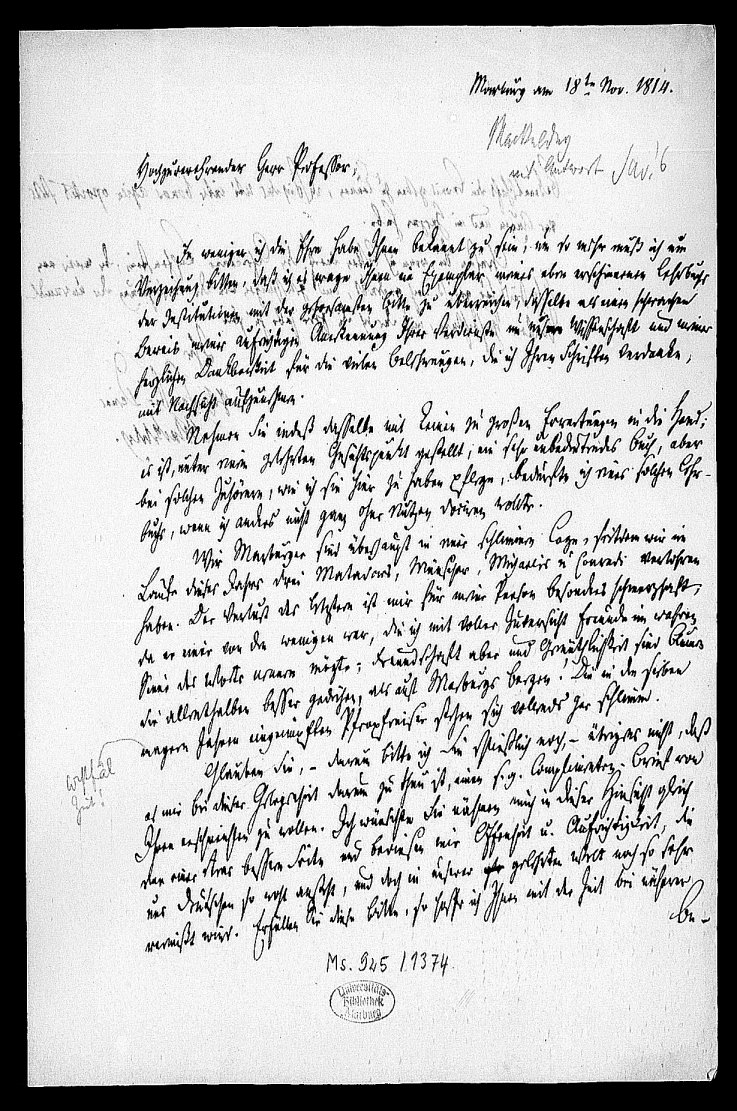 Marburg am 18ten Nov. 1814.
Mackeldey
mit Antwort Sav's
Hochzuverehrender Herr Professor,
Je weniger ich die Ehre habe Ihnen bekannt zu sein, um so mehr muß ich um
Verzeihung bitten, daß ich es wage Ihnen ein Exemplar meines eben erschienenen Lehrbuchs
der Institutionen mit der gehorsamsten Bitte zu überreichen, dasselbe als einen schwachen
Beweis meiner aufrichtigen Anerkennung Ihrer Verdienste um unsere Wissenschaft und meiner
herzlichen Dankbarkeit für die vielen Belehrungen, die ich Ihren Schriften verdanke,
mit Nachsicht aufzunehmen.
Nehmen Sie indeß dasselbe mit keinen zu großen Erwartungen in die Hand;
es ist, unter einen gelehrten Gesichtspunkt gestellt, ein sehr unbedeutendes Buch, aber
bei solchen Zuhörern, wie ich sie hier zu haben pflege, bedurfte ich eines solchen Lehr-
buchs, wenn ich anders nicht ganz ohne Nutzen dociren wollte.
Wir Marburger sind überhaupt in einer schlimmen Lage, seitdem wir im
Laufe dieses Jahres drei Matadors, Münscher, Michaelis u Conradi verloren
haben. Der Verlust des letztern ist mir für meine Person besonders schmerzhaft,
da er einer von den wenigen war, die ich mit voller Zuversicht Freunde im wahren
Sinne des Worts nennen mögte; Freundschaft aber und Gemüthlichkeit sind Blumen
die allenthalben besser gedeihen, als auf Marburgs Bergen! Die in den sieben
magern Jahren eingeimpften Pfropfreiser stehen sich vollends gar schlimm.
westfäl
Zeit!
Glauben Sie, – darum bitte ich Sie schließlich noch, – übrigens nicht, daß
es mir bei dieser Gelegenheit darum zu thun ist, einen s.g. Complimenten-Brief von
Ihnen erschreiben zu wollen. Ich wünschte Sie nähmen mich in dieser Hinsicht gleich
von einer etwas bessern Seite und bewiesen mir Offenheit u. Aufrichtigkeit, die
uns Deutschen so wohl ansteht, und doch in unserer gelehrten Welt noch so sehr
vermißt wird. Erfüllen Sie diese Bitte, so hoffe ich Ihnen mit der Zeit bei näherer
Be-
Ms. 925 / 1374.
Universitäts-
Bibliothek
Marburg